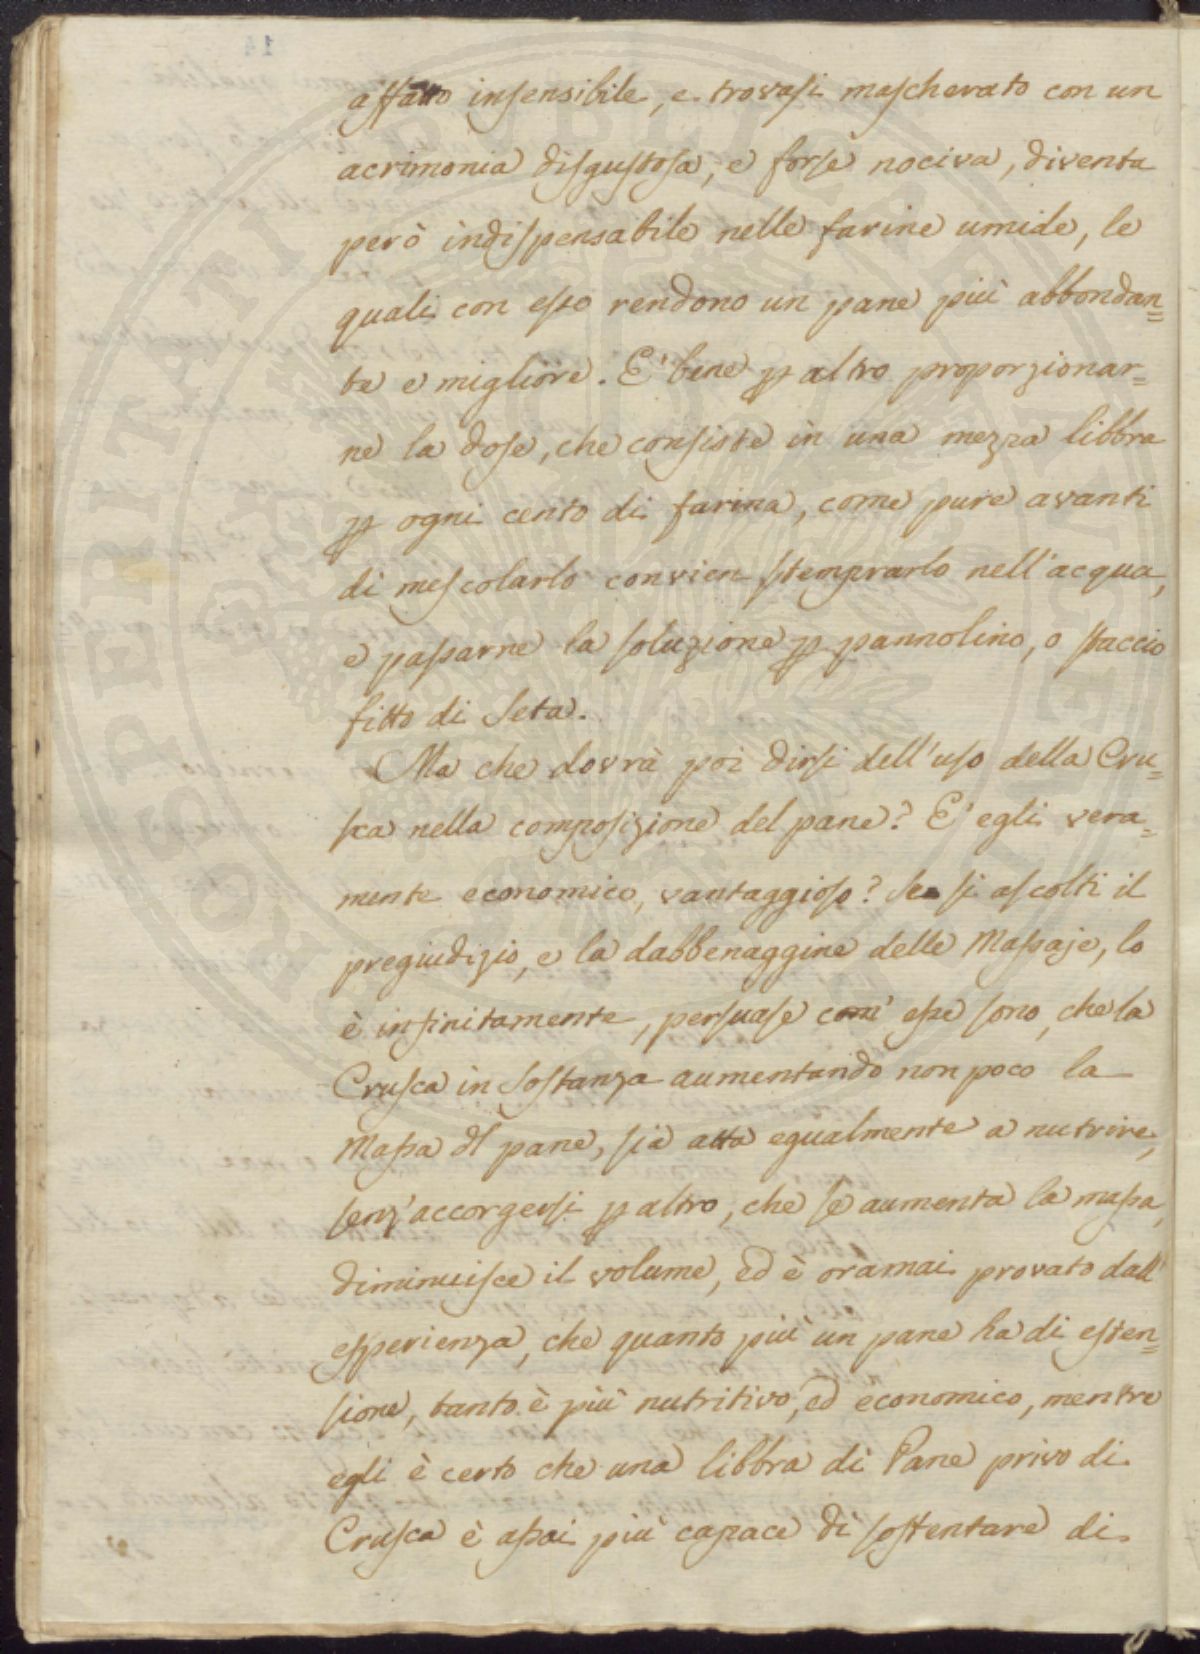 affatto insensibile, e trovasi mascherato con un
acrimonia disgustosa, e forse nociva, diventa
però indispensabile nelle farine umide, le
quali con esso rendono un pane più abbondan=
te e migliore. E' bene ꝑ altro proporzionar=
ne la dose, che consiste in una mezza libbra
ꝑ ogni cento di farina, come pure avanti
di mescolarlo convien stemprarlo nell'acqua,
e passarne la soluzione ꝑ pannolino, o staccio
fitto di Seta.
Ma che dovrà poi dirsi dell'uso della Cru=
sca nella composizione del pane? E' egli vera=
mente economico, vantaggioso? Se si ascolti il
pregiudizio, e la dabbenaggine delle Massaje, lo
è infinitamente, persuase com' esse sono, che la
Crusca in Sostanza aumentando non poco la
Massa dl pane, sia atta egualmente a nutrire,
senz'accorgersi ꝑ altro, che se aumenta la massa,
diminuisce il volume, ed è oramai provato dall'
esperienza, che quanto più un pane ha di esten=
sione, tanto è più nutritivo, ed economico, mentre
egli è certo che una libbra di Pane privo di
Crusca è assai più capace di sostentare di
PROSPERITATI PUBLICAE AUGENDAE
14